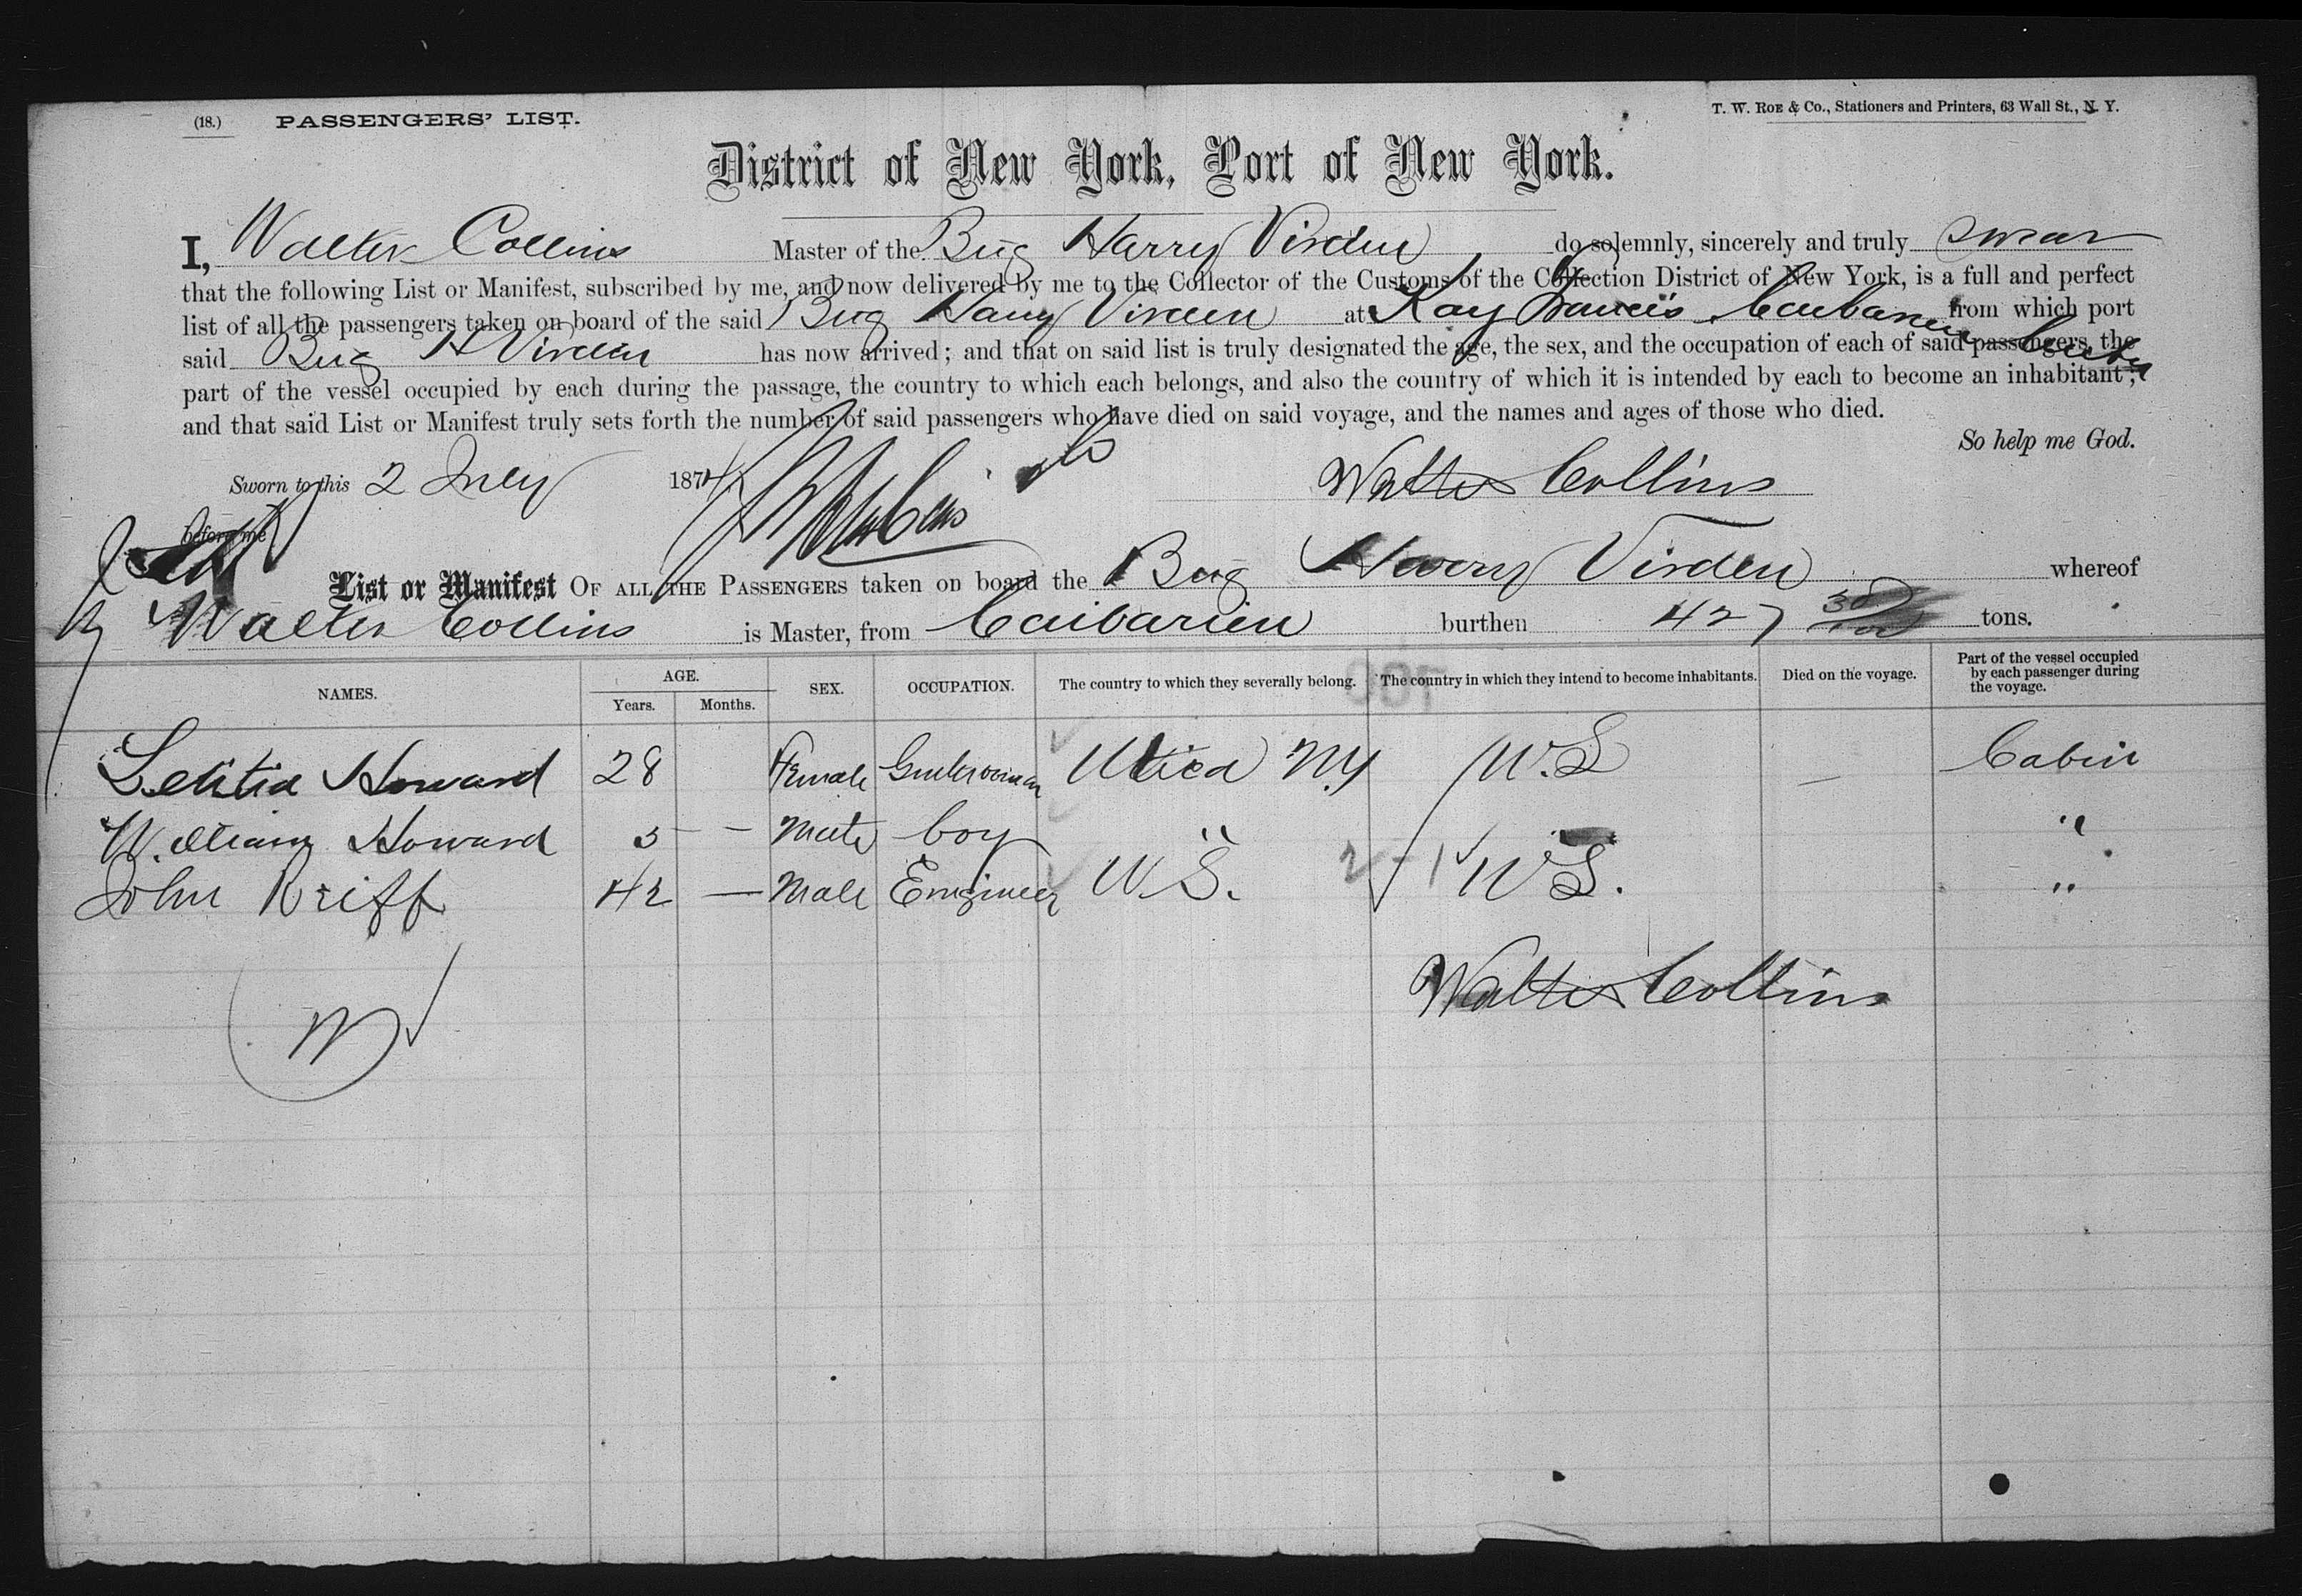 (18.) PASSENGERS' LIST.
T. W. ROE & Co., Stationers and Printers, 63 Wall St., N. Y.
District of New York, Port of New York.
I, Walter Collins Master of the Brig Harry Virden do solemnly, sincerely and truly swear
that the following List or Manifest, subscribed by me, and now delivered by me to the Collector of the Customs of the Collection District of New York, is a full and perfect
list of all the passengers taken on board of the said Brig Harry Virden at Kay Francis Caibarien Cuba from which port
said Brig H Virden has now arrived; and that on said list is truly designated the age, the sex, and the occupation of each of said passengers, the
part of the vessel occupied by each during the passage, the country to which each belongs, and also the country of which it is intended by each to become an inhabitant;
and that said List or Manifest truly sets forth the number of said passengers who have died on said voyage, and the names and ages of those who died.
So help me God.
Sworn to this 2 July 1874 Walter Collins
before me
List or Manifest OF ALL THE PASSENGERS taken on board the Brig Harry Virden whereof
Walter Collins is Master, from Caibarien burthen 427 tons.
NAMES. AGE. Years. Months. SEX. OCCUPATION. The country to which they severally belong. The country in which they intend to become inhabitants. Died on the voyage. Part of the vessel occupied by each passenger during the voyage.
Letitia Howard 28 Female Gentlewoman Utica NY U.S — Cabin
William Howard 5 — Male boy " "
John Kriff 42 — Male Engineer U.S. U S. "
Walter Collins